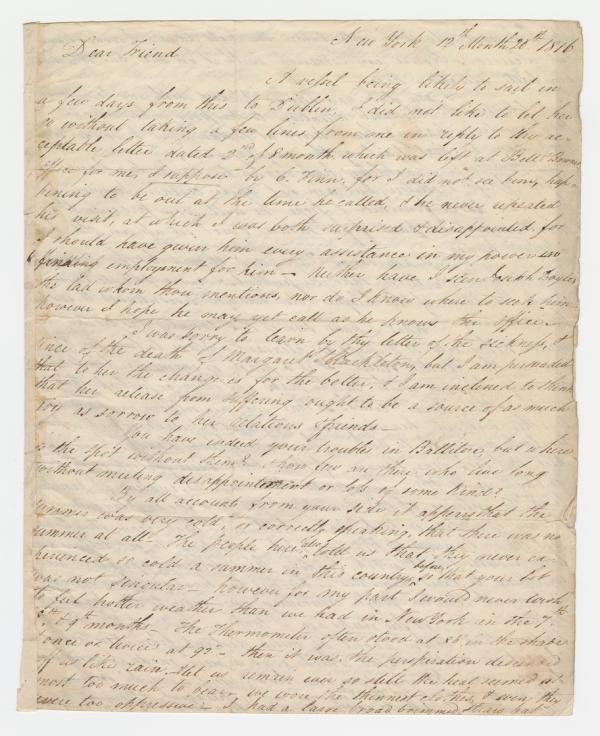 New York 12th Month 28th 1816
Dear Friend
A vessel being likely to sail in
a few days from this to Dublin, I did not like to let her
go without taking a few lines from me in reply to thy ac-
ceptable letter dated 2nd of 8 month which was left at
office for me, I suppose by C. Finn, for I did not see him, hap-
pening to be out at the time he called, & he never repeated
his visit, at which I was both surprised & disappointed, for
I should have given him every assistance in my power in
finding employment for him — Neither have I seen Joseph
the lad whom thou mentions, nor do I know where to seek him
however I hope he may yet call as he knows the office —
I was sorry to learn by thy letter of the sickness, &
since of the death of Margaret Shackleton, but I am persuaded
that to her the change is for the better, & I am inclined to think
that her release from suffering ought to be a source of as much
joy as sorrow to her relations & friends —
You have indeed your troubles in Ballitore, but where
is the spot without them? & how few are there who live long
without meeting disappointment or loss of some kind?
By all accounts from your side it appears that the
summer was very cold, or correctly speaking, that there was no
summer at all — The people here also told us that they never ex-
perienced so cold a summer in this country before, so that your lot
was not singular — however for my part I would never wish
to feel hotter weather than we had in New York in the 7th
8th & 9th months — The Thermometer often stood at 86 in the shade
once or twice at 92 — then it was the perspiration descended
off us like rain. Let us remain ever so still the heat seemed al-
most too much to bear, we wore the thinnest clothes, & even they
were too oppressive — I had a large broad brimmed straw hat